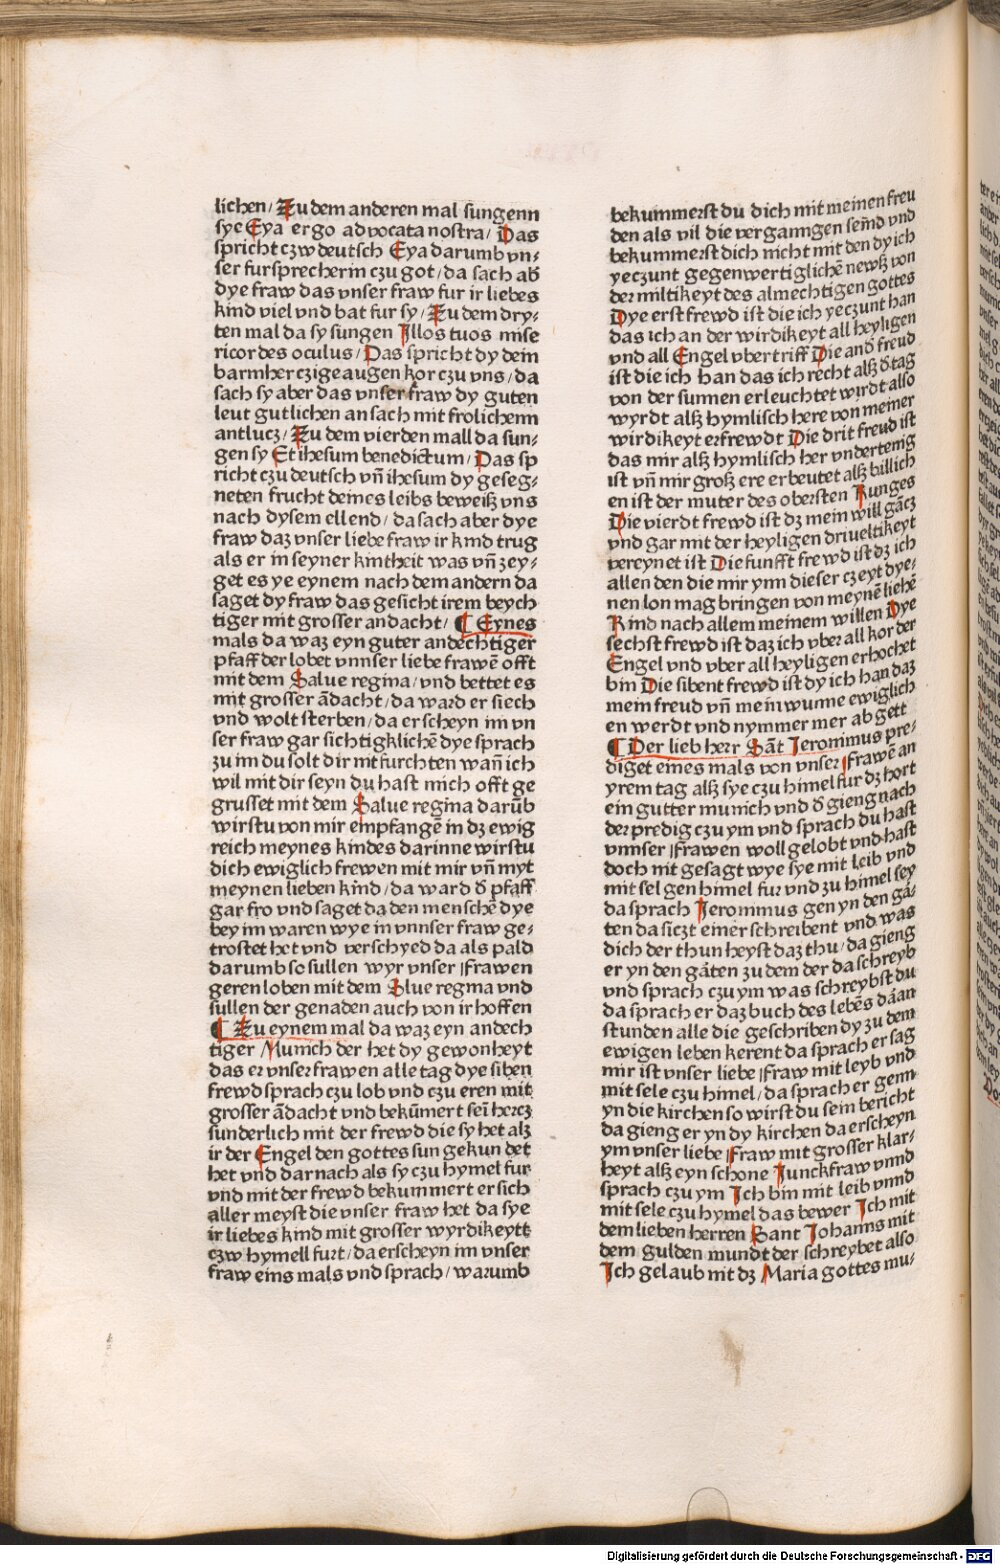 lichen/ Zu dem anderen mal sungenn
sye Eya ergo advocata nostra/ Das
spricht czw deutsch Eya darumb vn-
ser fursprecherin czu got/ da sach ab̃
dye fraw das vnser fraw fur ir liebes
kind viel vnd bat fur sy/ Zu dem dry-
ten mal da sy sungen Illos tuos mise
ricordes oculus/ Das spricht dy dein
barmherczige augen kor czu vns/ da
sach sy aber das vnser fraw dy guten
leut gutlichen an sach mit frolichem
antlucz/ Zu dem vierden mall da sun-
gen sy Et ihesum benedictum/ Das sp
richt czu deutsch vñ ihesum dy geseg-
neten frucht deines leibs beweiß vns
nach dysem ellend/ da sach aber dye
fraw daz vnser liebe fraw ir kind trug
als er in seyner kintheit was vñ zey-
get es ye eynem nach dem andern da
saget dy fraw das gesicht irem beych
tiger mit grosser andacht/ ¶ Eynes
mals da waz eyn guter andechtiger
pfaff der lobet vnnser liebe frawē offt
mit dem Salue regina/ vnd bettet es
mit grosser ādacht/ da ward er siech
vnd wolt sterben/ da erscheyn im vn
ser fraw gar sichtigklichē dye sprach
zu im du solt dir nit furchten wañ ich
wil mit dir seyn du hast mich offt ge
grusset mit dem Salue regina darūb
wirstu von mir empfangē in dz ewig
reich meynes kindes darinne wirstu
dich ewiglich frewen mit mir vñ myt
meynen lieben kind/ da ward d̃ pfaff
gar fro vnd saget da den menschē dye
bey im waren wye im vnnser fraw ge-
trostet het vnd verschyed da als pald
darumb so sullen wyr vnser Frawen
geren loben mit dem Slue regina vnd
sullen der genaden auch von ir hoffen
¶ Zu eynem mal da waz eyn andech
tiger Munich der het dy gewonheyt
das er vnser frawen alle tag dye siben
frewd sprach czu lob vnd czu eren mit
grosser ādacht vnd bekūmert sein hercz
sunderlich mit der frewd die sy het alz
ir der Engel den gottes sun gekundet
het vnd darnach als sy czu hymel fur
vnd mit der frewd bekummert er sich
aller meyst die vnser fraw het da sye
ir liebes kind mit grosser wyrdikeytt
czw hymell furt/ da erscheyn im vnser
fraw eins mals vnd sprach/ warumb
bekummerst du dich mit meinen freu
den als vil die verganngen sem̃d vnd
bekummerst dich nicht mit den dy ich
yeczunt gegenwertiglichē newß von
der miltikeyt des almechtigen gottes
Dye erst frewd ist die ich yeczunt han
das ich an der wirdikeyt all heyligen
vnd all Engel vbertriff Die and̃ freud
ist die ich han das ich recht alß d̃ tag
von der sunnen erleuchtet wirdt also
wyrdt alß hymlisch here von meiner
wirdikeyt erfrewdt Die drit freud ist
das mir alß hymlisch her vndertenig
ist vñ mir groß ere erbeutet alß billich
en ist der muter des obersten Kunges
Die vierdt frewd ist dz mein will gācz
vnd gar mit der heyligen driueltikeyt
vereynet ist Die funfft frewd ist dz ich
allen den die mir ynn dieser czeyt dye-
nen lon mag bringen von meynē liebē
Kind nach allem meinem willen Dye
sechst frewd ist daz ich vber all kor der
Engel vnd vber all heyligen erhochet
bin Die sibent frewd ist dy ich han daz
mein freud vñ mein wunne ewiglich
en werdt vnd nymmer mer ab gett
¶ Der lieb herr Sāt Jeronimus pre-
diget eines mals von vnser Frawē an
yrem tag alß sye czu himel fur dz hort
ein gutter munich vnd d̃ gieng nach
der predig czu ym vnd sprach du hast
vnnser Frawen woll gelobt vnd hast
doch nit gesagt wye sye mit leib vnd
mit sel gen himel fur vnd zu himel sey
da sprach Jeronimus gen yn den gā-
ten da siczt einer schreibent vnd was
dich der thun heyst daz thu/ da gieng
er yn den gāten zu dem der da schreyb
vnd sprach czu ym was schreybst du
da sprach er daz buch des lebēs dāan
stunden alle die geschriben dy zu dem
ewigen leben kerent da sprach er sag
mir ist vnser liebe Fraw mit leyb vnd
mit sele czu himel/ da sprach er genn
yn die kirchen so wirst du sein bericht
da gieng er yn dy kirchen da erscheyn
ym vnser liebe Fraw mit grosser klar-
heyt alß eyn schone Junckfraw vnnd
sprach czu ym Ich bin mit leib vnnd
mit sele czu hymel das bewer Ich mit
dem lieben herren Sant Johanns mit
dem gulden mundt der schreybet also
Ich gelaub nit dz Maria gottes mu-
Digitalisierung gefördert durch die Deutsche Forschungsgemeinschaft - DFG